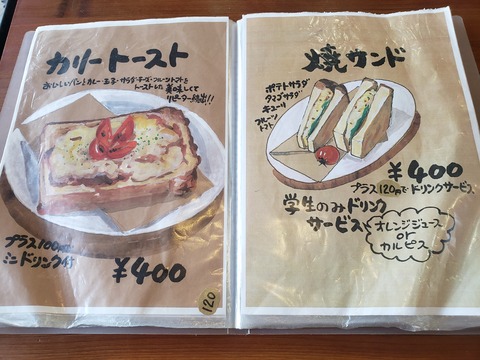 カリートースト
おいしいパンとカレー・玉子・サラダ・チーズ・フルーツトマトを
トーストした 美味しくて
リピーター続出!!
プラス100円で
ミニドリンク付
¥400
120
焼サンド
ポテトサラダ
タマゴサラダ
キューリ
フルーツ
トマト
¥400
プラス120円でドリンクサービス
学生のみドリンク
サービス
オレンジジュース
or
カルピス